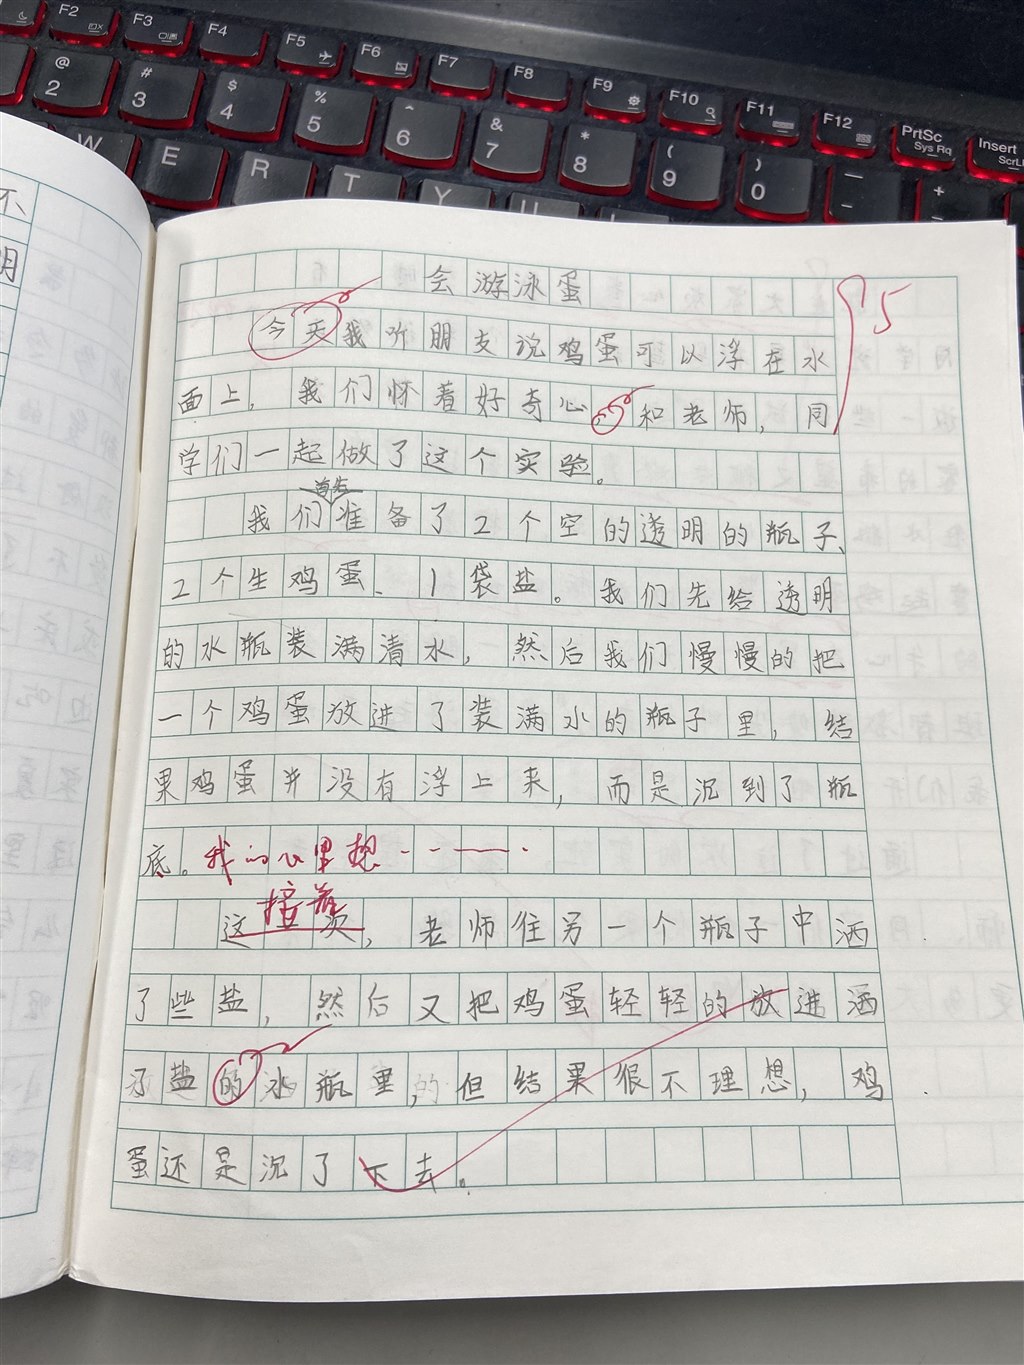 F2 F3 F4 F5 F6 F7 F8 F9 F10 F11 F12 PrtSc Insert
Sys Rq
@ # $ % ^ & * ( ) — +
2 3 4 5 6 7 8 9 0 -
W E R T Y U
不
明
会游泳蛋
95
今天我听朋支说鸡蛋可以浮在水
面上，我们怀着好奇心，和老师，同
学们一起做了这个实验。
首先
我们准备了2个空的透明的瓶子、
2个生鸡蛋、1袋盐。我们先给透明
的水瓶装满清水，然后我们慢慢的把
一个鸡蛋放进了装满水的瓶子里，结
果鸡蛋并没有浮上来，而是沉到了瓶
底。我的心里想……
接着
这次，老师往另一个瓶子中洒
了些盐，然后又把鸡蛋轻轻的放进洒
了盐的水瓶里，但结果很不理想，鸡
蛋还是沉了下去。